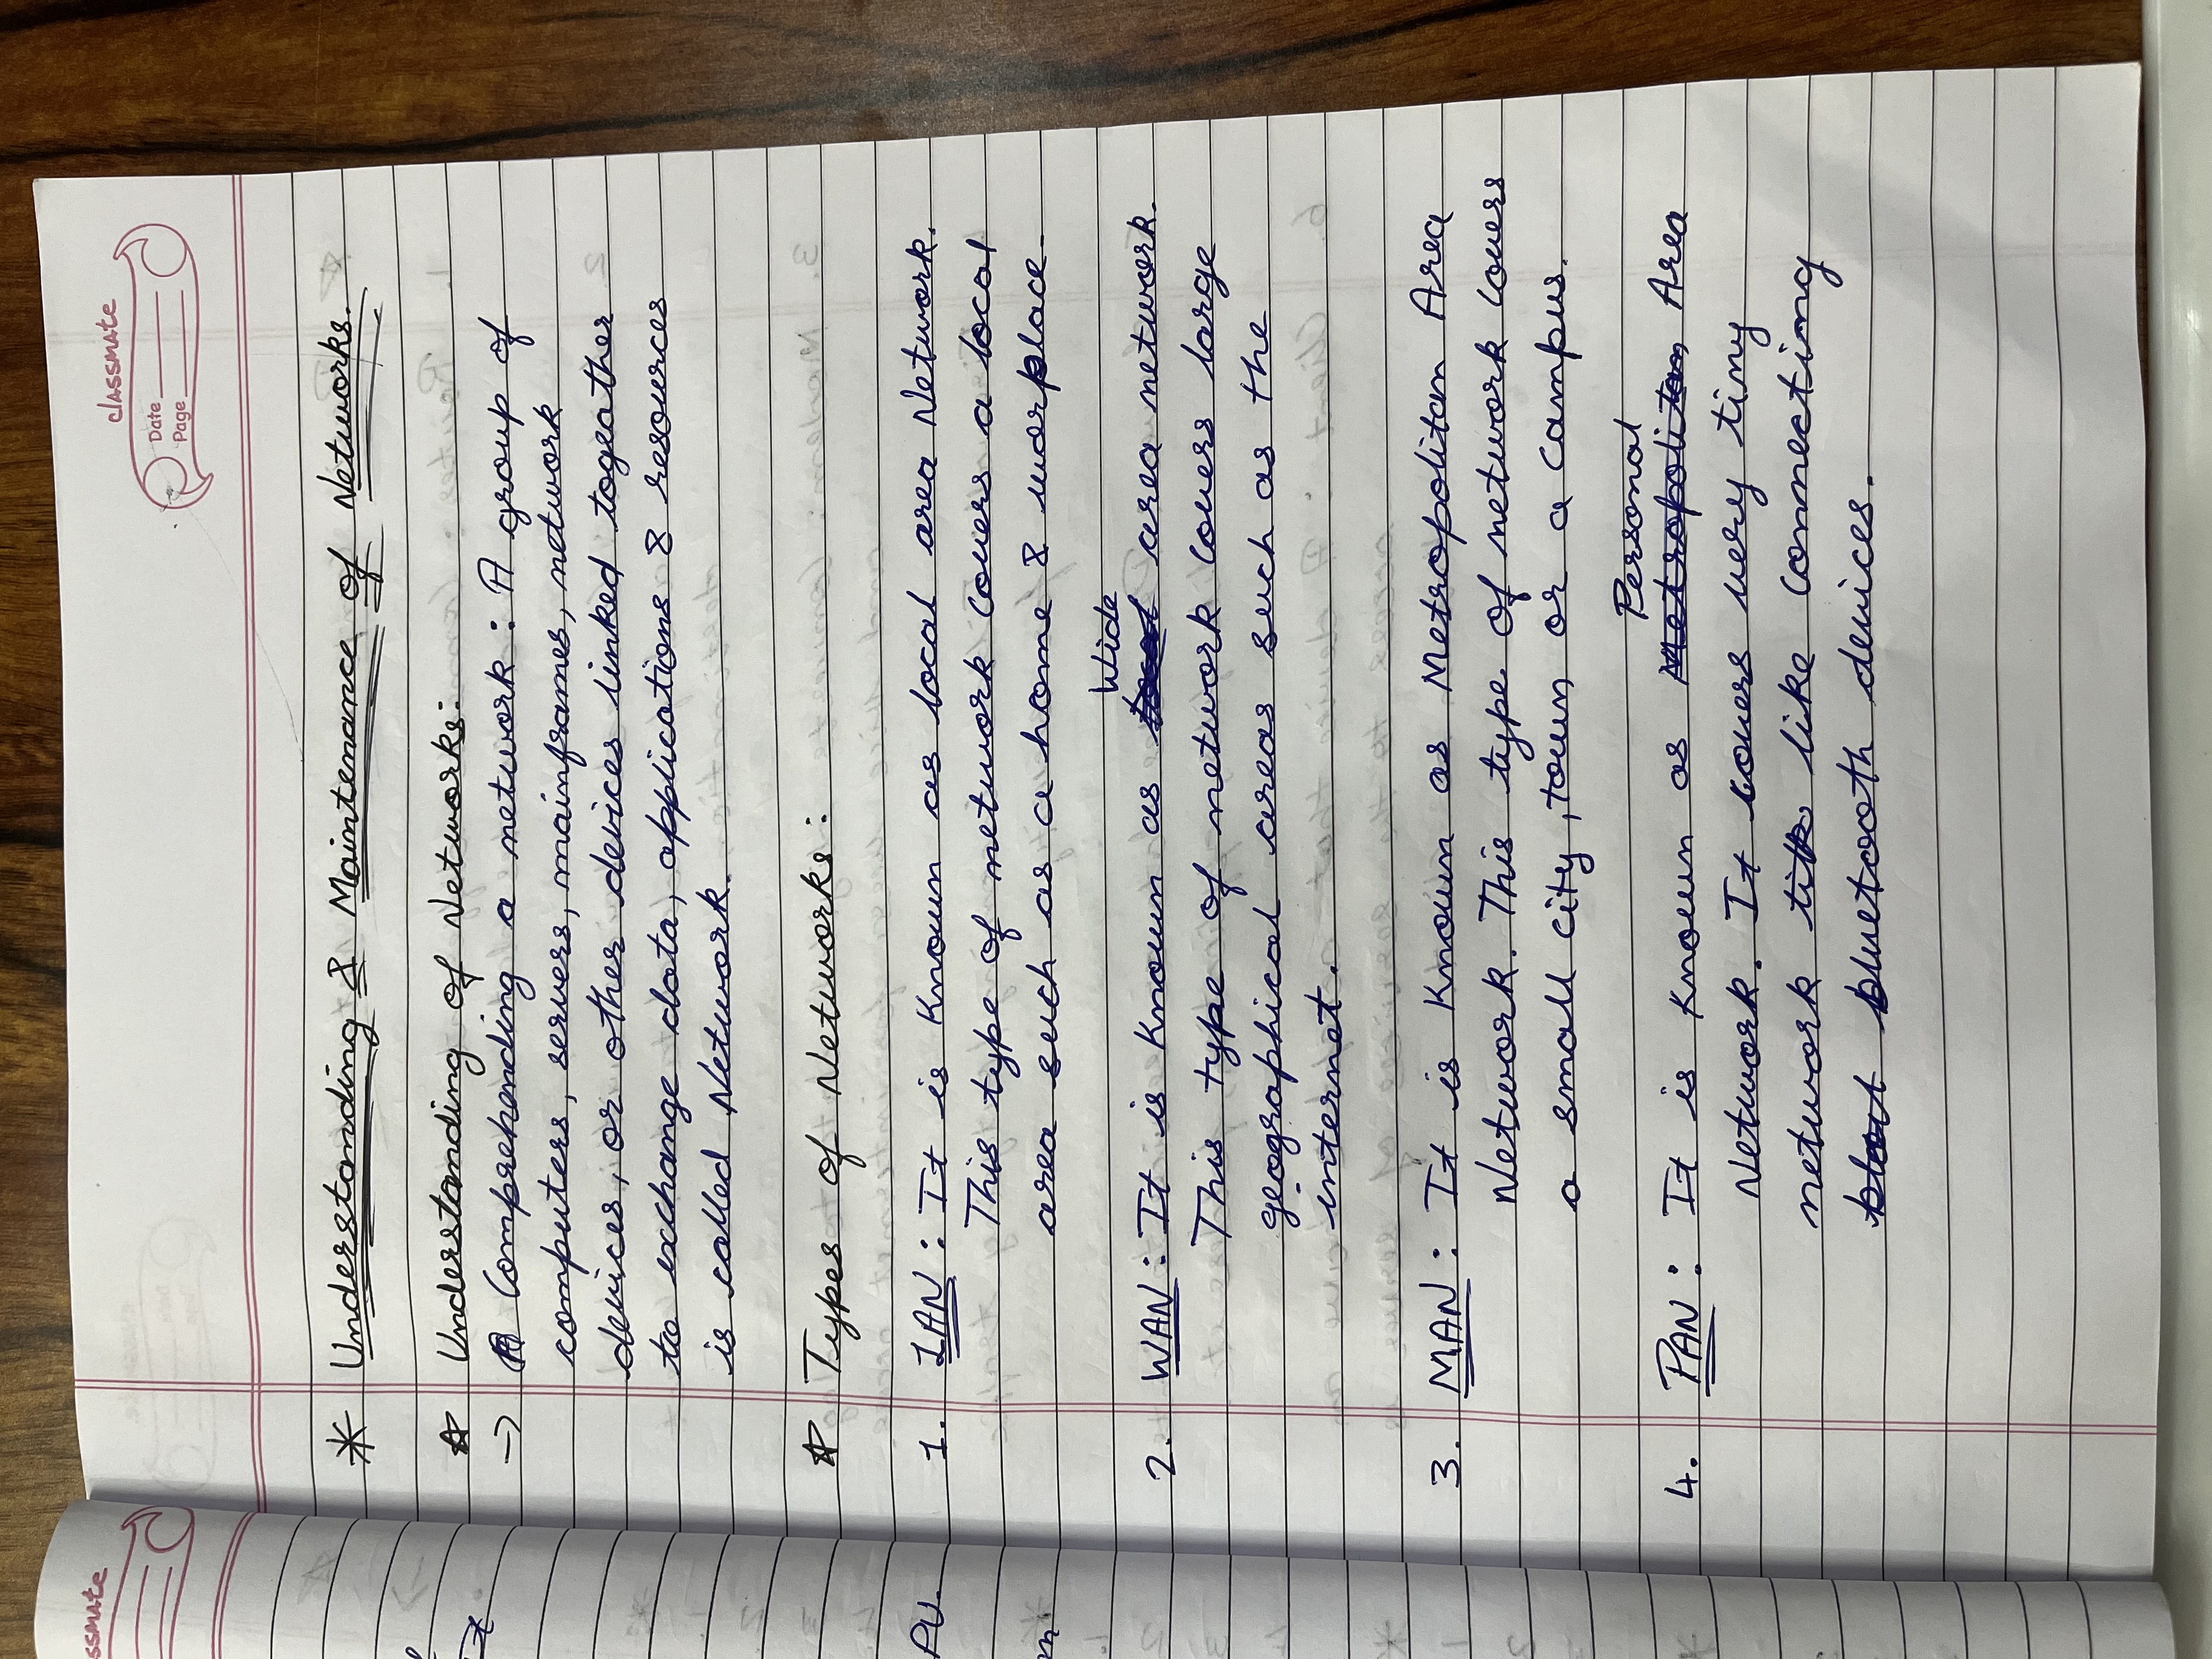 ssmate
classmate
Date
Page
* Understanding & Maintenance of Networks.
☆ Understanding of Networks:
→ Comprehending a network : A group of
computers, servers, mainframes, network
devices, or other devices linked togeather
to exchange data, applications & resources
is called Network.
☆ Types of Networks :
1. LAN : It is Known as local area Network.
This type of network covers a local
area such as a home & worplace.
Wide
2. WAN : It is Known as local area network.
This type of network covers large
geographical areas such as the
internet.
3. MAN : It is Known as Metropolitan Area
Network. This type of network covers
a small city, town or a campus.
Personal
4. PAN : It is Known as Metropolitan Area
Network. It covers very tiny
network like connecting
bluetooth devices.
PU.